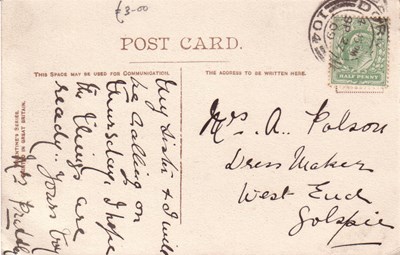 £3-00
POST CARD.
THIS SPACE MAY BE USED FOR COMMUNICATION.
THE ADDRESS TO BE WRITTEN HERE.
My Sister & I will
be Calling on
Thursday, I hope
the things are
ready. Yours Truly
Mrs
Mrs. A. Polson
Dress Maker
West End
Golspie
HALF PENNY
104